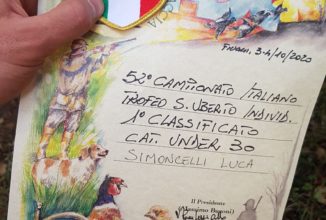 3-4/10/2020
52° CAMPIONATO ITALIANO
TROFEO S. UBERTO INDIVID.
1° CLASSIFICATO
CAT. UNDER 30
SIMONCELLI LUCA
Il Presidente